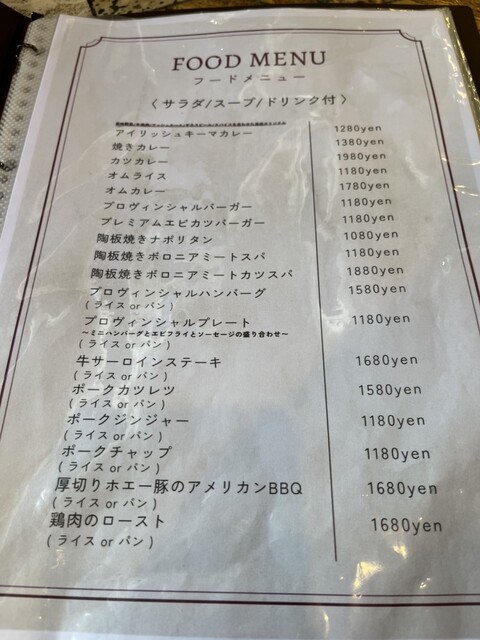 FOOD MENU
フードメニュー
〈 サラダ/スープ/ドリンク付 〉
アイリッシュキーマカレー 1280yen
焼きカレー 1380yen
カツカレー 1980yen
オムライス 1180yen
オムカレー 1780yen
プロヴィンシャルバーガー 1180yen
プレミアムエビカツバーガー 1180yen
陶板焼きナポリタン 1080yen
陶板焼きボロニアミートスパ 1180yen
陶板焼きボロニアミートカツスパ 1880yen
プロヴィンシャルハンバーグ 1580yen
( ライス or パン )
プロヴィンシャルプレート 1180yen
〜ミニハンバーグとエビフライとソーセージの盛り合わせ〜
( ライス or パン )
牛サーロインステーキ 1680yen
( ライス or パン )
ポークカツレツ 1580yen
( ライス or パン )
ポークジンジャー 1180yen
( ライス or パン )
ポークチャップ 1180yen
( ライス or パン )
厚切りホエー豚のアメリカンBBQ 1680yen
( ライス or パン )
鶏肉のロースト 1680yen
( ライス or パン )